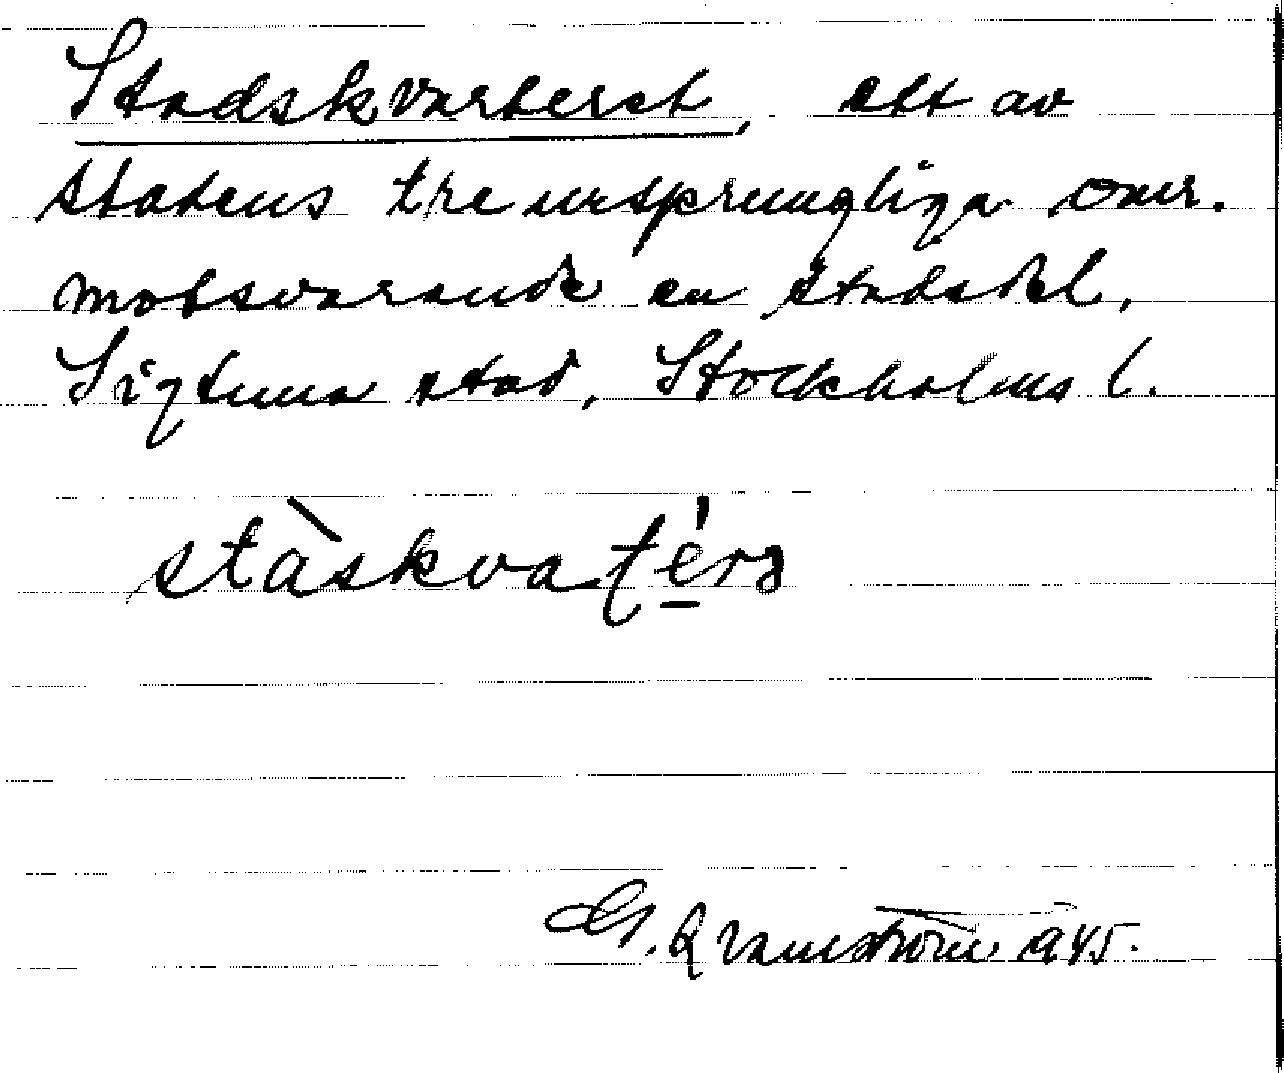 Stadskvarteret, ett av
statens tre ursprungliga omr.
motsvarande en stadsdel,
Sigtuna stad, Stockholms l.
stàskvaʈérə
G. Qvarnström 1945.